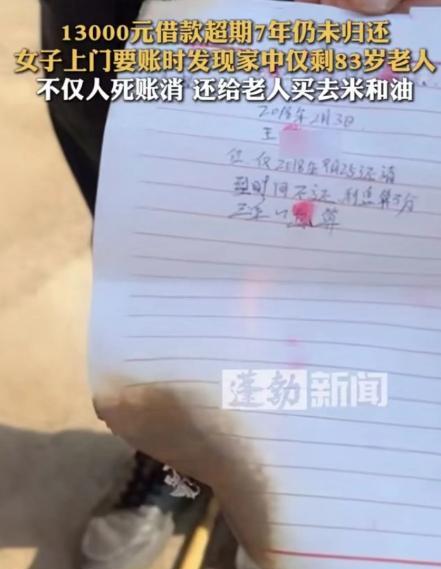 13000元借款超期7年仍未归还
女子上门要账时发现家中仅剩83岁老人
不仅人死账消 还给老人买去米和油
2018年2月3日
王
2018年9月25还清
到时间不还 利息算5分
蓬勃新闻